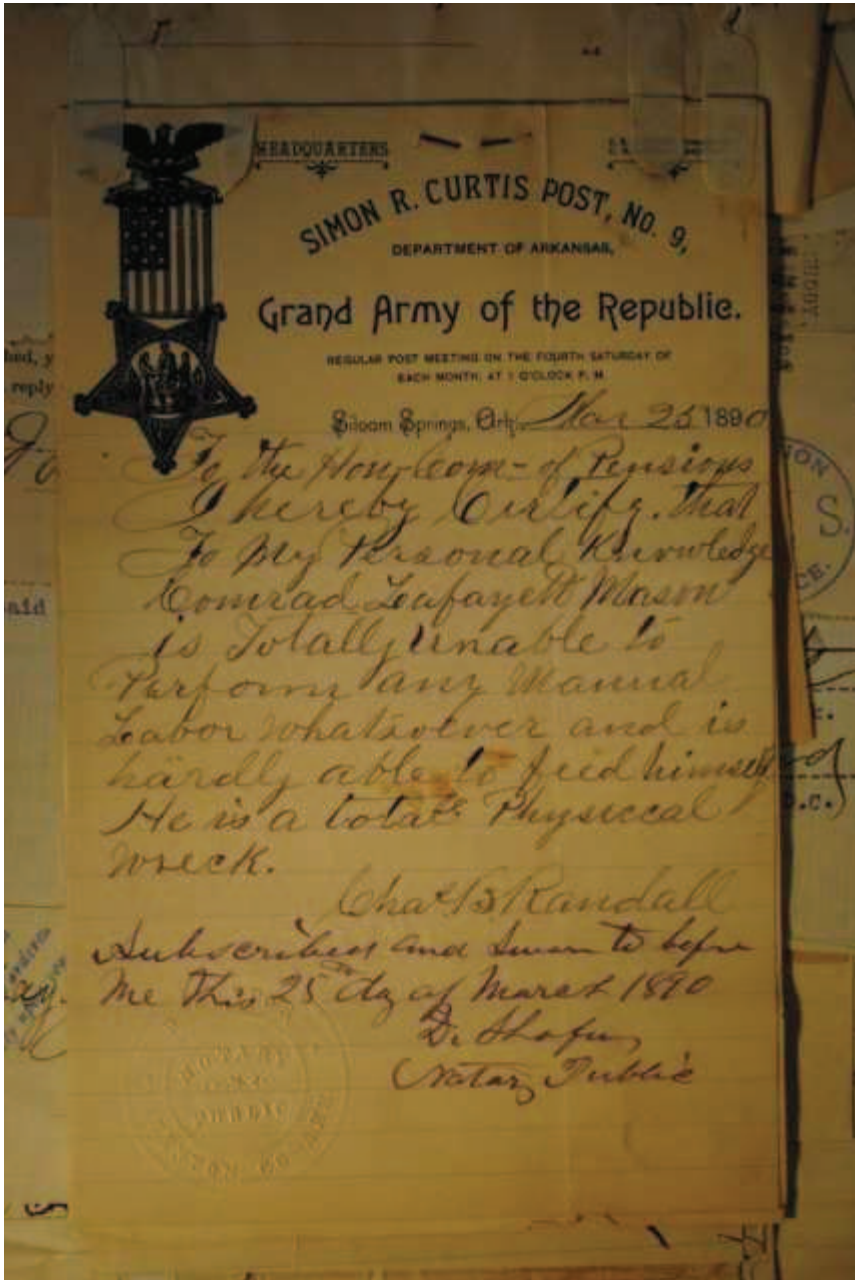 HEADQUARTERS
SIMON R. CURTIS POST, NO. 9,
DEPARTMENT OF ARKANSAS,
Grand Army of the Republic.
REGULAR POST MEETING ON THE FOURTH SATURDAY OF
EACH MONTH, AT 1 O'CLOCK P. M.
Siloam Springs, Ark., Mar 25 1890
To the Hon. Com- of Pensions
I hereby Certify. that
To My Personal Knowledge
Comrad Lafayett Mason
is Totally Unable to
Perform any Manual
Labor whatsoever and is
hardly able to feed himself
He is a total Physiccal
wreck.
Chas B Randall
Subscribed and Sworn to before
Me This 25th day of March 1890
Notary Public
NOTARY
PUBLIC
hed, y
reply
aid
ION
S.
CE.
D.C.)